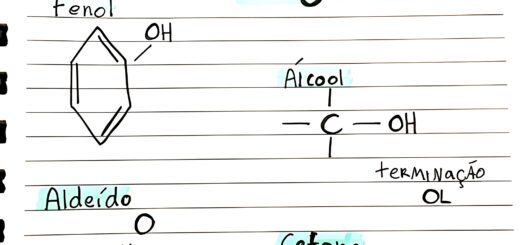 Fenol
OH
Álcool
— C — OH
terminação
OL
Aldeído
O
Cetona